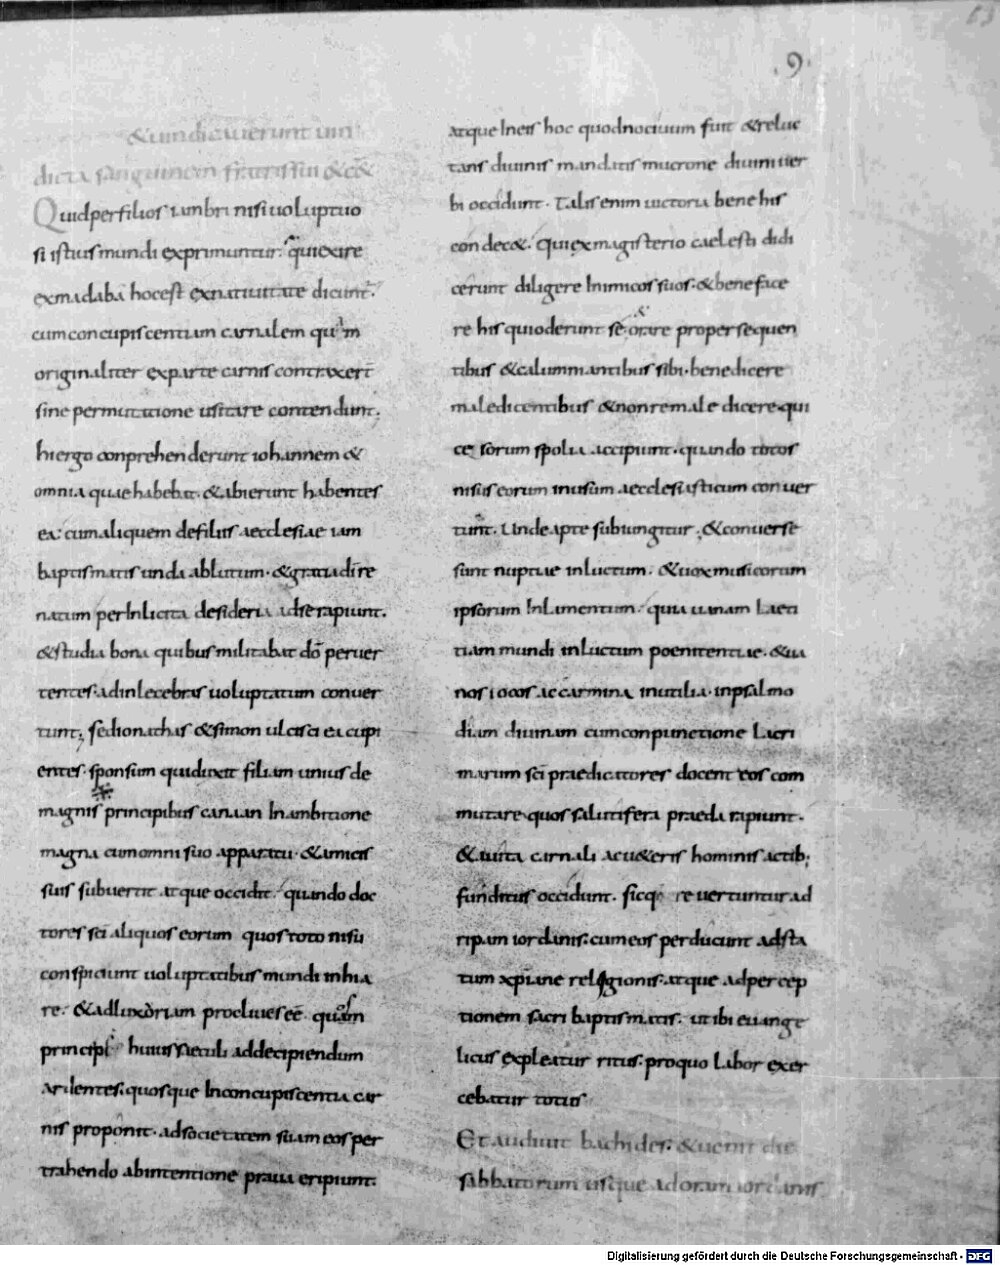 63
.9.
& uindicauerunt uin
dicta sanguinem fratris sui &c&
Quid per filios iambri nisi uoluptuo
si istius mundi exprimuntur. qui exire
ex madaba hoc est ex natiuitate dicunt.
cum concupiscentiam carnalem quam
originaliter ex parte carnis contraxert̄
sine permutatione usitare contendunt.
hi ergo conprehenderunt iohannem &
omnia quae habebat. & abierunt habentes
ea: cum aliquem de filiis aecclesiae iam
baptismatis unda ablutum. & gratia di re
natum per inlicita desideria ad se rapiunt.
& studia bona quibus militabat dō peruer
tentes. ad inlecebras uoluptatum conuer
tunt; sed ionathas & simon ulcisci ea cupi
entes. sponsam qui duxit filiam unius de
magnis principibus canaan in ambitione
magna cum omni suo apparatu. & amicis
suis subuertit atque occidit. quando doc
tores sci aliquos eorum quos toto nisu
conspiciunt uoluptatibus mundi inhia
re. & ad luxoriam procliues eē. quam
princips huius saeculi ad decipiendum
ardentes. quosque in concupiscentia car
nis proponit. ad societatem suam eos per
trahendo ab intentione praua eripiunt.
atque in eis hoc quod nociuum fuit & reluc
tans diuinis mandatis mucrone diuini uer
bi occidunt. Talis enim uictoria bene his
condec&. qui ex magisterio caelesti didi
cerunt diligere inimicos suos. & beneface
re his qui oderunt se. & orare pro persequen
tibus & calumniantibus sibi. benedicere
maledicentibus & non remaledicere. qui
ce sorum spolia accipiunt. quando totos
nisus eorum in usum aecclesiasticum conuer
tunt. Unde apte subiungitur. & conuerse
sunt nuptiae in luctum. & uox musicorum
ipsorum in lamentum. quia uanam laeti
tiam mundi in luctum poenitentiae. & ua
nos iocos ac carmina inutilia. in psalmo
diam diuinam cum conpunctione lacri
marum sci praedicatores docent eos com
mutare quos salutifera praeda rapiunt.
& a uita carnali ac u&eris hominis actib;
funditus occidunt. sicq; reuertuntur ad
ripam iordanis. cum eos perducunt ad sta
tum xpiane religionis. atque ad percep
tionem sacri baptismatis. ut ibi euange
licus expleatur ritus. pro quo labor exer
cebatur totus
Et audiuit bachides. & uenit die
sabbatorum usque ad oram iordanis
Digitalisierung gefördert durch die Deutsche Forschungsgemeinschaft - DFG